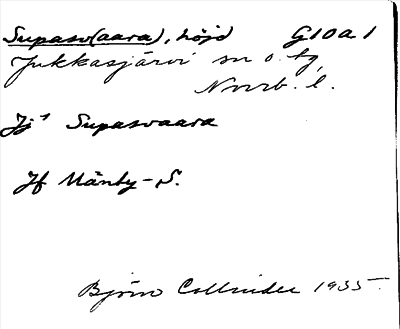 Supasv(aara), höjd G10a1
Jukkasjärvi sn o. tg,
Norrb. l.
Jj¹ Supasvaara
Jf Mänty-S.
Björn Collinder 1935.